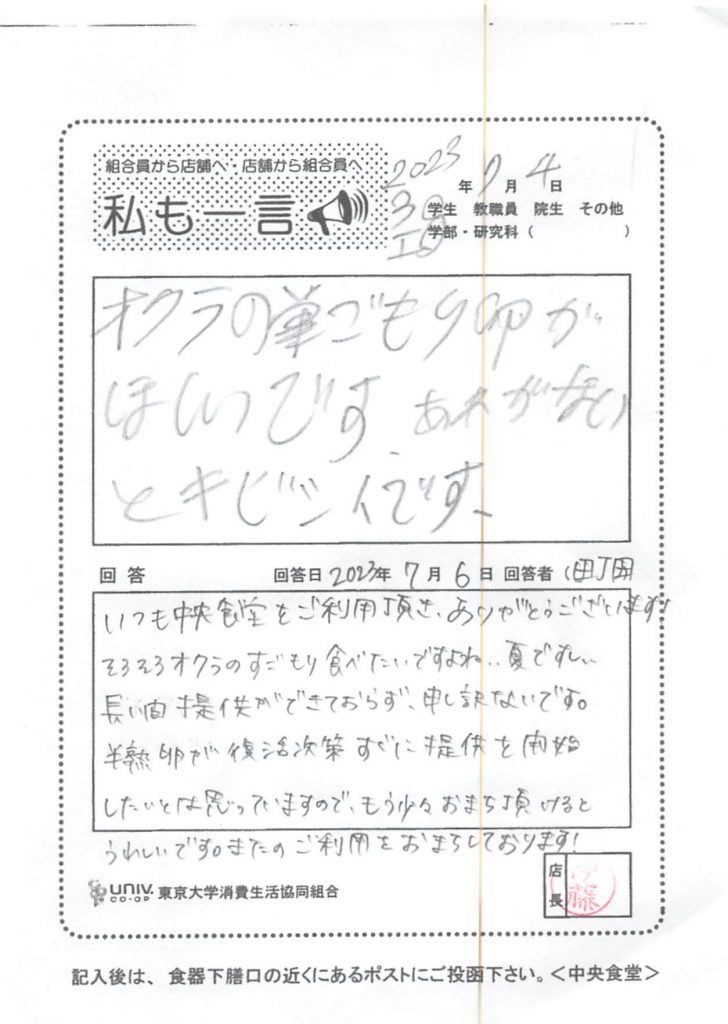 組合員から店舗へ・店舗から組合員へ
私も一言
2023年7月4日
学生 教職員 院生 その他
学部・研究科（ ）
オクラの巣ごもり卵が
ほしいです。あれがない
とキビシイです、
回答 回答日 2023年7月6日 回答者 町田
いつも中央食堂をご利用頂き、ありがとうございます!
そろそろオクラのすごもり食べたいですよね.. 夏ですし..
長い間提供ができておらず、申し訳ないです。
半熟卵が復活次第すぐに提供を開始
したいとは思っていますので、もう少々おまち頂けると
うれしいです。またのご利用をおまちしております!
店長
伊藤
UNIV. CO-OP 東京大学消費生活協同組合
記入後は、食器下膳口の近くにあるポストにご投函下さい。＜中央食堂＞